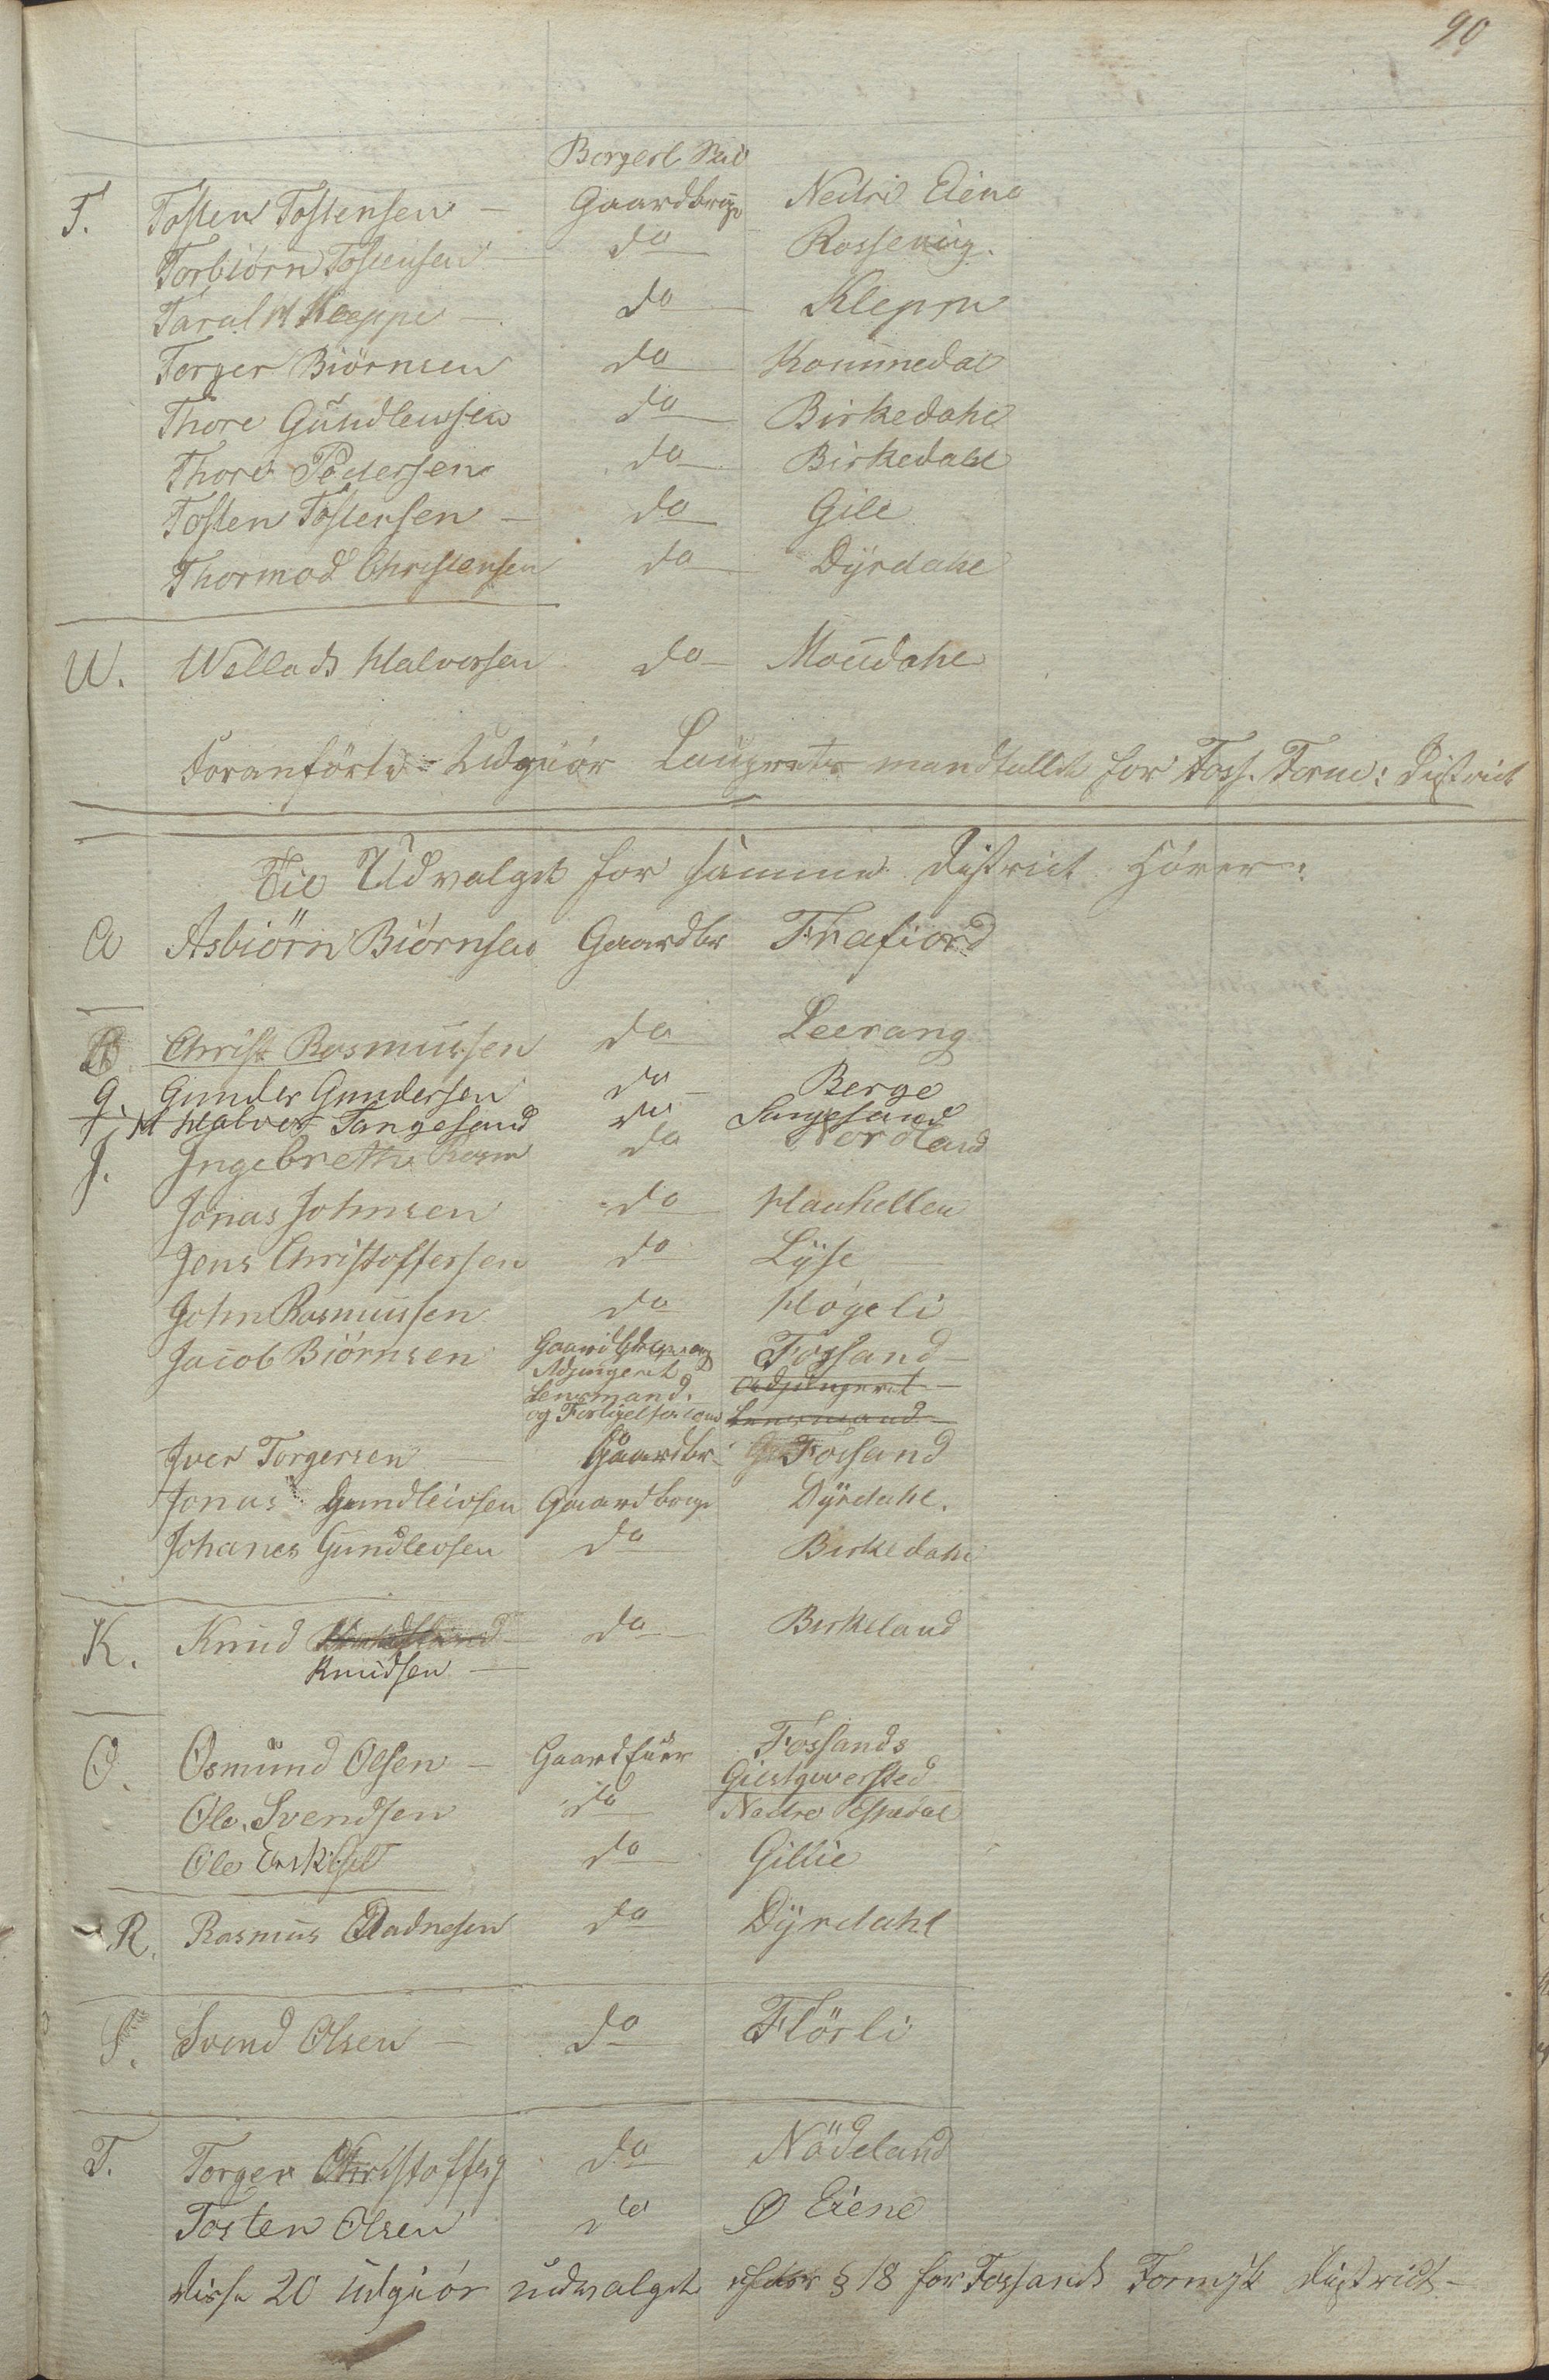 90
Borgerl
T. Tosten Tostensen – Gaardbrug Nedre Eiene
Torbiörn Tostensen – do Rossevig.
Taral Kleppe – do Kleppe
Torger Biörnsen do Kommedal
Thore Gundleivsen do Birkedahl
Thore Pedersen do Birkedahl
Tosten Tostensen – do Gile
Thormod Christensen do Dyrdahl
W. Wellads Halvorsen do Moudahl
Foranförte Udgiör Laugrets mandtallet for Foss. Form: District
Til Udvalget for samme District hörer:
A Asbiörn Biörnsen Gaardbr Frafiord
Christ Rasmussen do Leerang
G. Gunder Gundersen do Berge
H Halvor Tangesand do Sangesand
J. Ingebreth Rasm do Nordland
Jonas Johnsen do Hauhellen
Jens Christoffersen do Lyse
John Rasmussen do Högeli
Jacob Biörnsen Gaardbruger og Fossand –
Adjungeret Adjungeret –
Lensmand. Lensmand –
og Forligelses
Iver Torgersen – Gaardbr. Fossand
Jonas Gundleivsen Gaardbrug Dyrdahl.
Johanes Gundlevsen do Birkedahl
K. Knud do Birkeland
Knudsen –
O. Osmund Olsen – Gaardbuer Fossands
Giestgiversted
Ole Svendsen do Nedre Espedal
Ole do Gillie
R. Rasmus Ådnesen do Dyrdahl
S. Svend Olsen – do Flörli
T. Torger Christoffers do Nödeland
Tosten Olsen do Ø Eiene
disse 20 udgiör udvalget efter § 18 for Fossands Form:sk District –